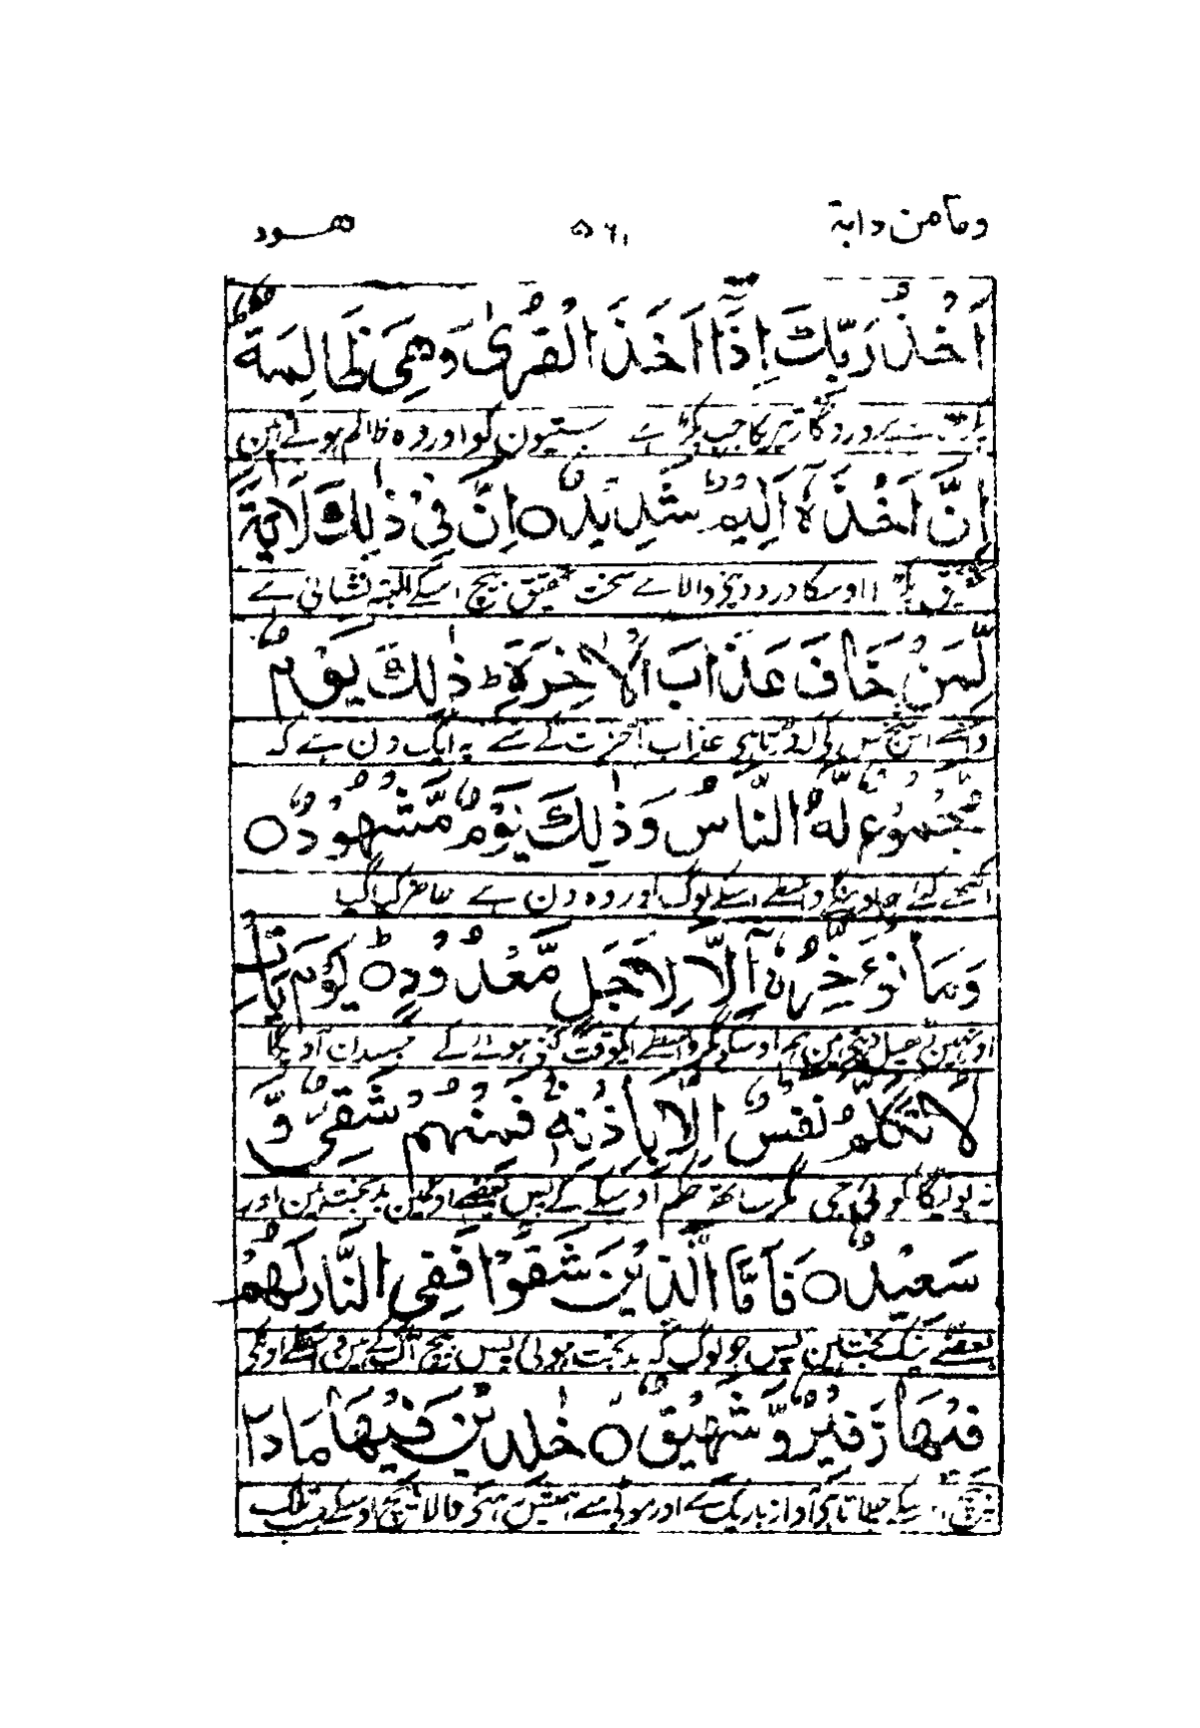 وما من دابة ۵۶۱ هود
اَخْذُ رَبِّكَ اِذَآ اَخَذَ الْقُرٰى وَهِيَ ظَالِمَةٌ
پروردگار تیرے کا جب پکڑتا ہے بستیون کو اور وہ ظالم ہوتے ہین
اِنَّ اَخْذَهٗٓ اَلِيْمٌ شَدِيْدٌ ۝ اِنَّ فِيْ ذٰلِكَ لَاٰيَةً
تحقیق پکڑ اوسکا درد دینے والا ہے سخت تحقیق بیچ اسکے البتہ نشانی ہے
لِّمَنْ خَافَ عَذَابَ الْاٰخِرَةِ ط ذٰلِكَ يَوْمٌ
واسطے اس شخص کے کہ ڈرتا ہی عذاب آخرت کے سے یہ ایک دن ہے کہ
مَّجْمُوْعٌ لَّهُ النَّاسُ وَذٰلِكَ يَوْمٌ مَّشْهُوْدٌ ۝
اکٹھے کئے جاوینگے واسطے اسکے لوگ اور وہ دن ہے حاضر کیا گیا
وَمَا نُؤَخِّرُهٗٓ اِلَّا لِاَجَلٍ مَّعْدُوْدٍ ۝ ط يَوْمَ يَاْتِ
اور نہین ڈھیل دیتے ہین ہم اوسکو مگر واسطے ایکوقت گنے ہوئے کے جسدن آویگا
لَا تَكَلَّمُ نَفْسٌ اِلَّا بِاِذْنِهٖ فَمِنْهُمْ شَقِيٌّ وَّ
نہ بولیگا کوئی جی مگر ساتھ حکم اوسکے کے پس بعضے اونمین بدبخت ہین اور
سَعِيْدٌ ۝ فَاَمَّا الَّذِيْنَ شَقُوْا فَفِي النَّارِ لَهُمْ
بعضے نیک بخت ہین پس جو لوگ کہ بدبخت ہوئی پس بیچ آگ کے ہین واسطے اونکی
فِيْهَا زَفِيْرٌ وَّشَهِيْقٌ ۝ خٰلِدِيْنَ فِيْهَا مَا دَا
بیچ اسکے چلانا ہی آواز باریک سے اور موٹی سے ہمیش رہنے والا بیچ اوسکے جب تلک